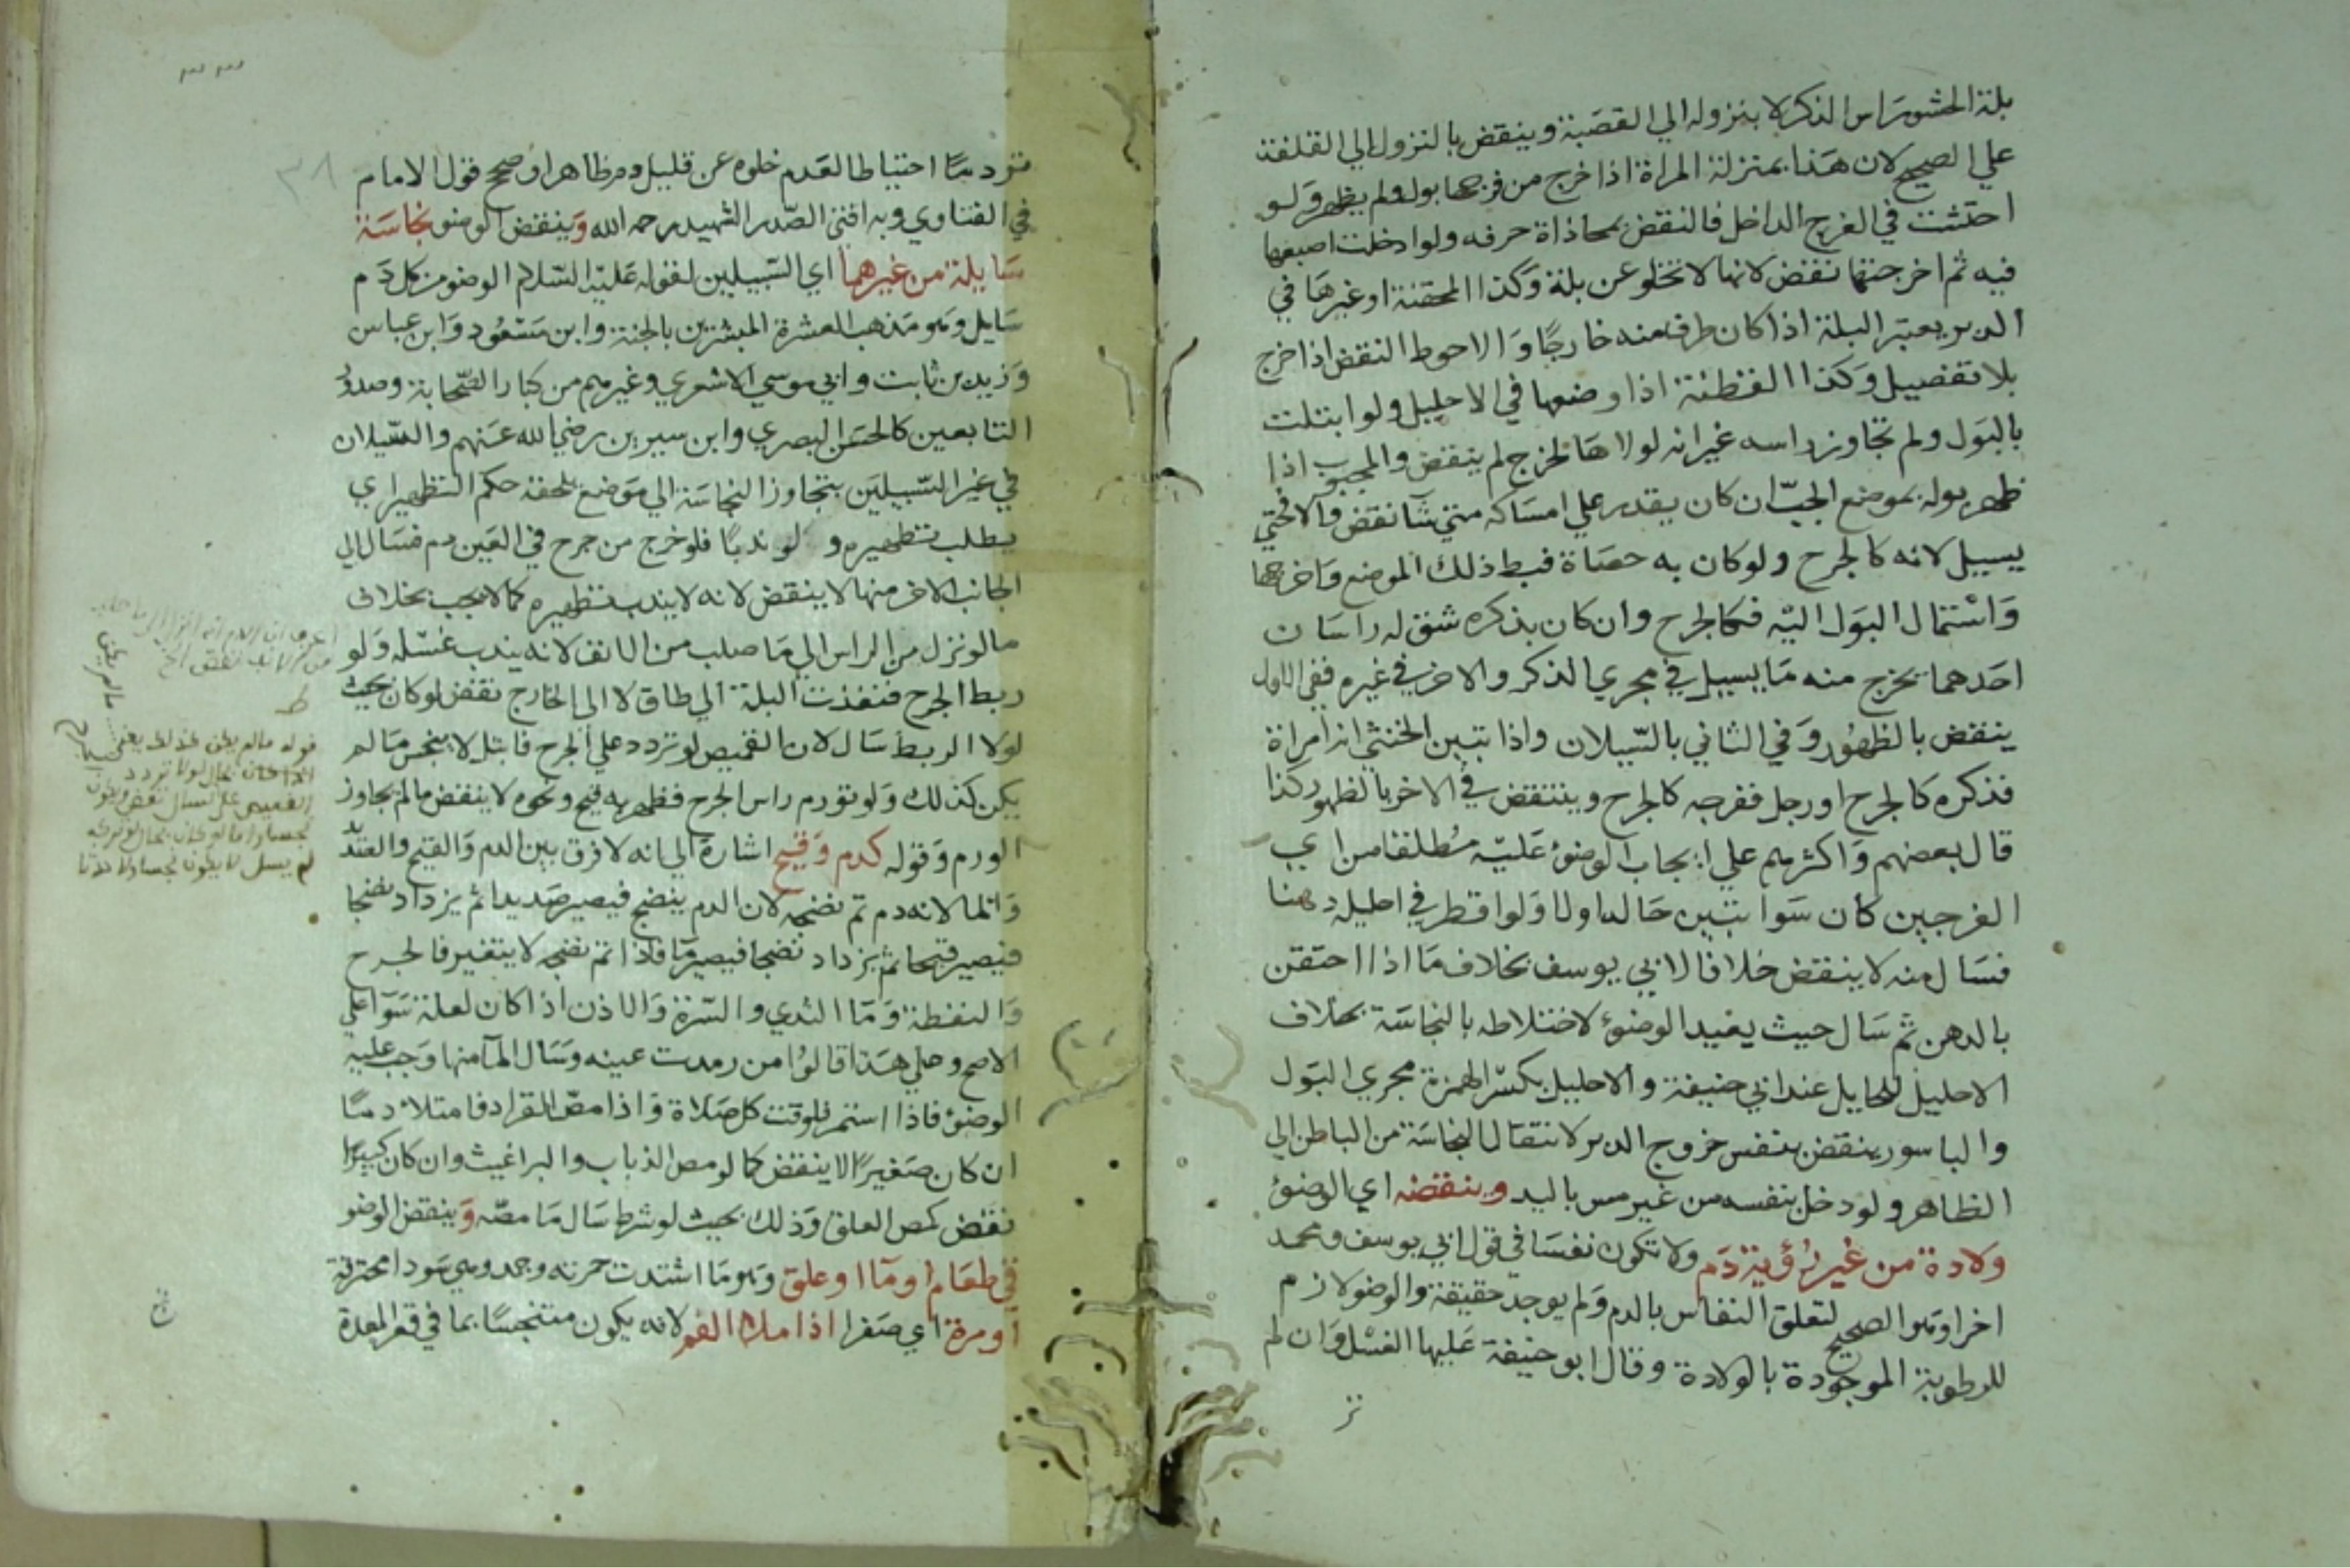 بلة الحشو براس الذكر لا بنزوله الي القصبة وينقض بالنزول الي القلفة
علي الصحيح لان هذا بمنزلة المراة اذا خرج من فرجها بول ولم يظهر ولو
احتشت في الفرج الداخل فالنقض بمحاذاة حرفه ولو ادخلت اصبعها
فيه ثم اخرجتها نقض لانها لا تخلو عن بلة وكذا المحقنة او غيرها في
الدبر يعتبر البلة اذا كان طرف منه خارجًا والاحوط النقض اذا خرج
بلا تفصيل وكذا القطنة اذا وضعها في الاحليل ولو ابتلت
بالبول ولم تجاوز راسه غير انه لولاها لخرج لم ينقض والمجبوب اذا
ظهر بوله بموضع الجبّ ان كان يقدر علي امساكه متي شآ نقض والا فحتي
يسيل لانه كالجرح ولو كان به حصاة فبط ذلك الموضع واخرجها
واستمال البول اليه فكالجرح وان كان بذكره شق له راسان
احدهما يخرج منه ما يسيل في مجري الذكر والاخر في غيره ففي الاول
ينقض بالظهور وفي الثاني بالسيلان واذا تبين الخنثي انه امراة
فذكره كالجرح او رجل ففرجه كالجرح وينتقض في الاخر بالظهور وكذا
قال بعضهم واكثرهم علي ايجاب الوضؤ عليه مطلقا من اي
الفرجين كان سوا تبين حاله اولا ولو اقطر في احليله دهنا
فسال منه لا ينقض خلافا لابي يوسف بخلاف ما اذا احتقن
بالدهن ثم سال حيث يعيد الوضؤ لاختلاطه بالنجاسة بخلاف
الاحليل للحايل عند ابي حنيفة والاحليل بكسر الهمزة مجري البول
والباسور ينقض بنفس خروج الدبر لانتقال النجاسة من الباطن الي
الظاهر ولو دخل بنفسه من غير مس باليد وينقضه اي الوضؤ
ولادة من غير رؤية دم ولا تكون نفسا في قول ابي يوسف ومحمد
اخرا وهو الصحيح لتعلق النفاس بالدم ولم يوجد حقيقة والوضو لازم
للرطوبة الموجودة بالولادة وقال ابو حنيفة عليها الغسل وان لم
تر
٣٨
تر دمًا احتياطا لعدم خلوه عن قليل دم ظاهرا وصحح قول الامام
في الفتاوي وبه افتي الصدر الشهيد رحمه الله وينقض الوضو نجاسة
سايلة من غيرهما اي السبيلين لقوله عليه السلام الوضو من كل دم
سايل وهو مذهب العشرة المبشرين بالجنة وابن مسعود وابن عباس
وزيد بن ثابت وابي موسي الاشعري وغيرهم من كبار الصحابة وصدور
التابعين كالحسن البصري وابن سيرين رضي الله عنهم والسيلان
في غير السبيلين بتجاوز النجاسة الي موضع يلحقه حكم التطهير اي
يطلب تطهيره ولو ندبًا فلو خرج من جرح في العين دم فسال الي
الجانب الاخر منها لا ينقض لانه لا يندب تطهيره كما لا يجب بخلاف
ما لو نزل من الراس الي ما صلب من الانف لانه يندب غسله ولو
ربط الجرح فنفذت البلة الي طاق لا الي الخارج نقض لو كان بحيث
لولا الربط سال لان القميص لو تردد علي الجرح فابتل لا ينجس ما لم
يكن كذلك ولو تورم راس الجرح فظهر به قيح ونحوه لا ينقض ما لم يجاوز
الورم وقوله كدم وقيح اشارة الي انه لا فرق بين الدم والقيح والصديد
وانما لانه دم تم نضجه لان الدم ينضج فيصير صديدا ثم يزداد نضجا
فيصير قيحا ثم يزداد نضجا فيصير مآ فاذا تم نضجه لا يتغير فالجرح
والنفطة وما الثدي والسرة والاذن اذا كان لعلة سوآ علي
الاصح وعلي هذا قالوا من رمدت عينه وسال المآ منها وجب عليه
الوضؤ فاذا استمر فلوقت كل صلاة واذا مص القراد فامتلا دمًا
ان كان صغيرًا لا ينقض كما لو مص الذباب والبراغيث وان كان كبيرًا
نقض كمص العلق وذلك بحيث لو شرط سال ما مصه وينقض الوضو
قي طعام او مآ او علق وهو ما اشتدت حمرته وجمد وهي سودا محترقة
او مرة اي صفرا اذا ملا الفم لانه يكون متنجسًا بما في قعر المعدة
ط
قوله ما لم يكن كذلك يعني